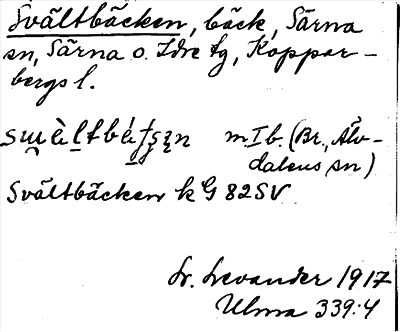 Svältbäcken, bäck, Särna
sn, Särna o. Idre tg, Koppar-
bergs l.
m I b. (Br., Älv-
dalens sn)
Svältbäcken k G 82 SV
Lr. Levander 1917
Ulma 339:4